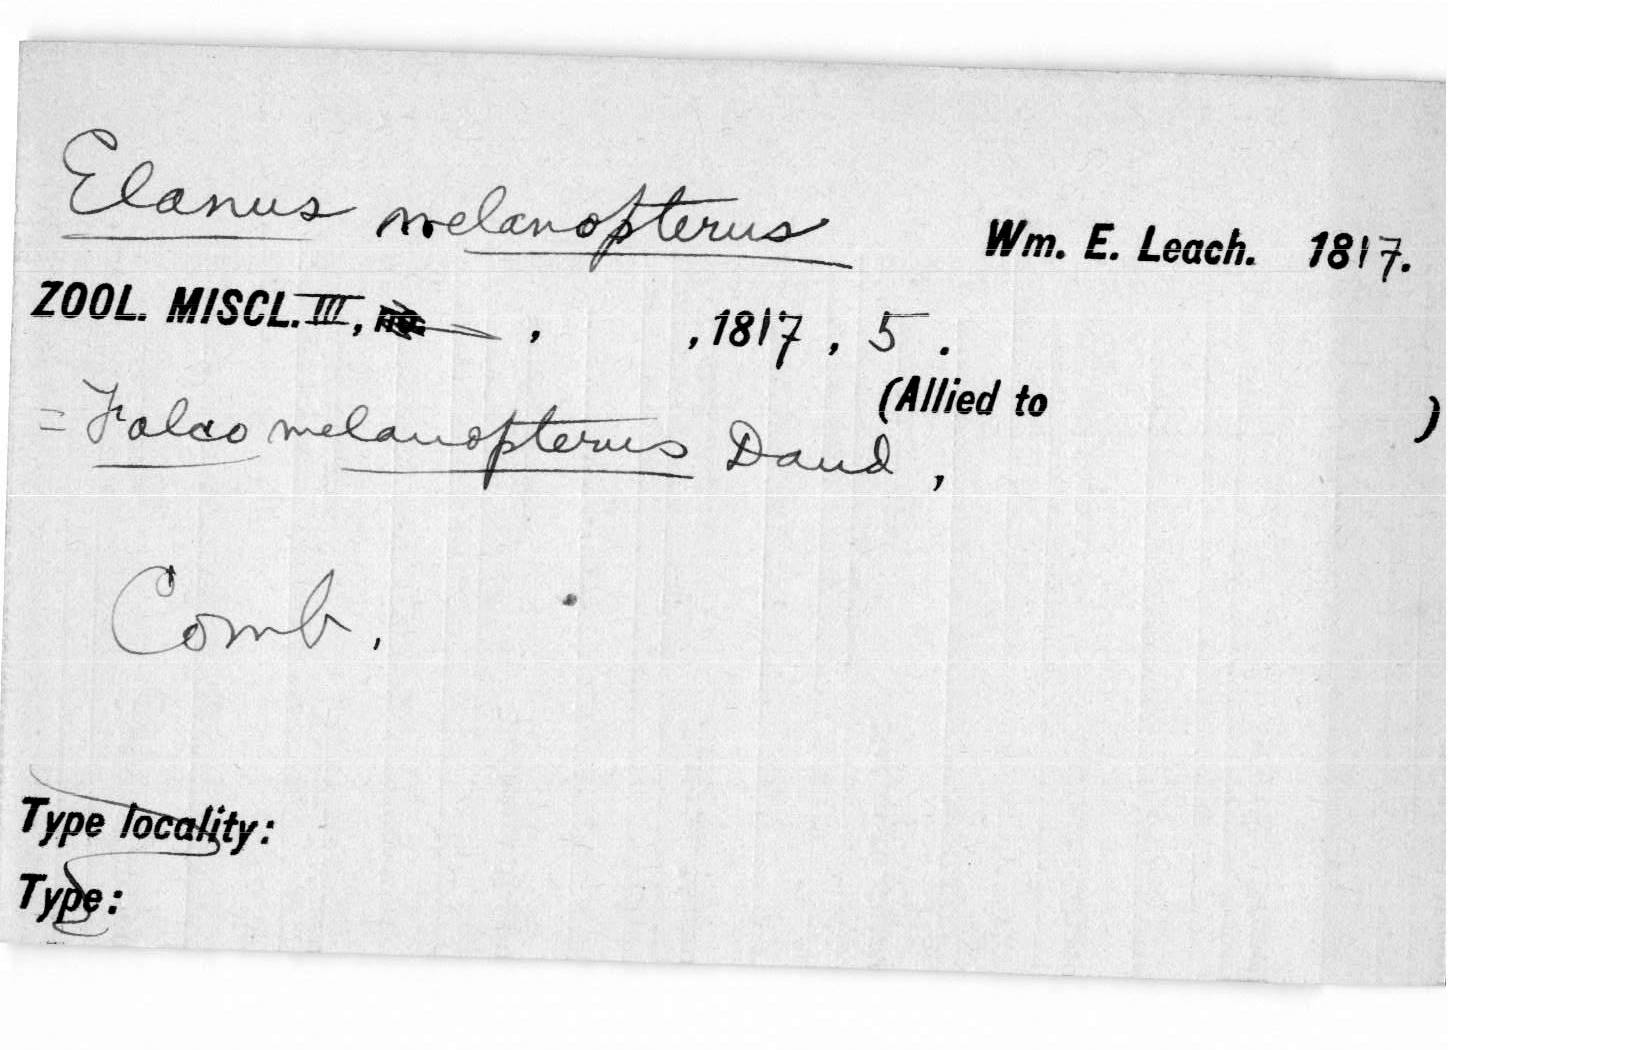 Elanus melanopterus Wm. E. Leach. 1817.
ZOOL. MISCL. III, , ,1817, 5.
(Allied to )
=Falco melanopterus Daud,
Comb.
Type locality:
Type: